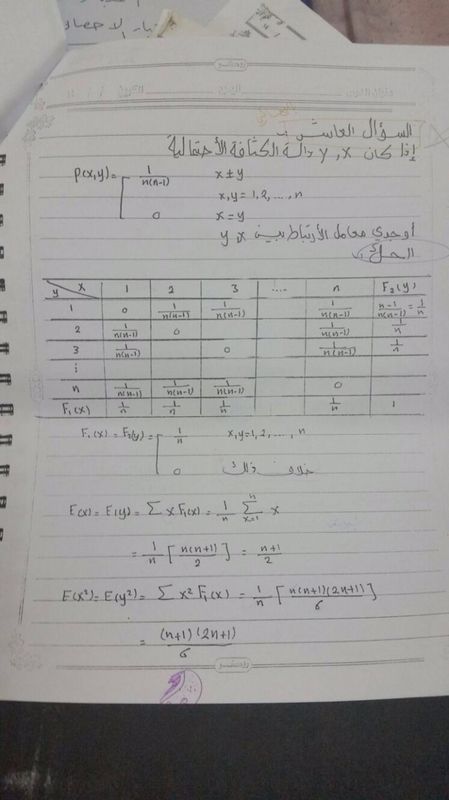 السؤال العاشر :-
إذا كان x, y دالة الكثافة الاحتمالية
P(x,y) = 1/n(n-1) x ± y
x,y = 1, 2, ..., n
0 x = y
أوجدي معامل الارتباط بين x, y
الحل
y x 1 2 3 .... n F₂(y)
1 0 1/n(n-1) 1/n(n-1) 1/n(n-1) n-1/n(n-1) = 1/n
2 1/n(n-1) 0 1/n(n-1) 1/n
3 1/n(n-1) 0 1/n(n-1) 1/n
⋮
n 1/n(n-1) 1/n(n-1) 1/n(n-1) 0
F₁(x) 1/n 1/n 1/n 1/n 1
F₁(x) = F₂(y) = 1/n x,y = 1, 2, ..., n
0 خلاف ذلك
E(x) = E(y) = Σ x F₁(x) = 1/n Σ x=1 n x
= 1/n [n(n+1)/2] = n+1/2
E(x²) = E(y²) = Σ x² F₁(x) = 1/n [n(n+1)(2n+1)/6]
= (n+1)(2n+1)/6